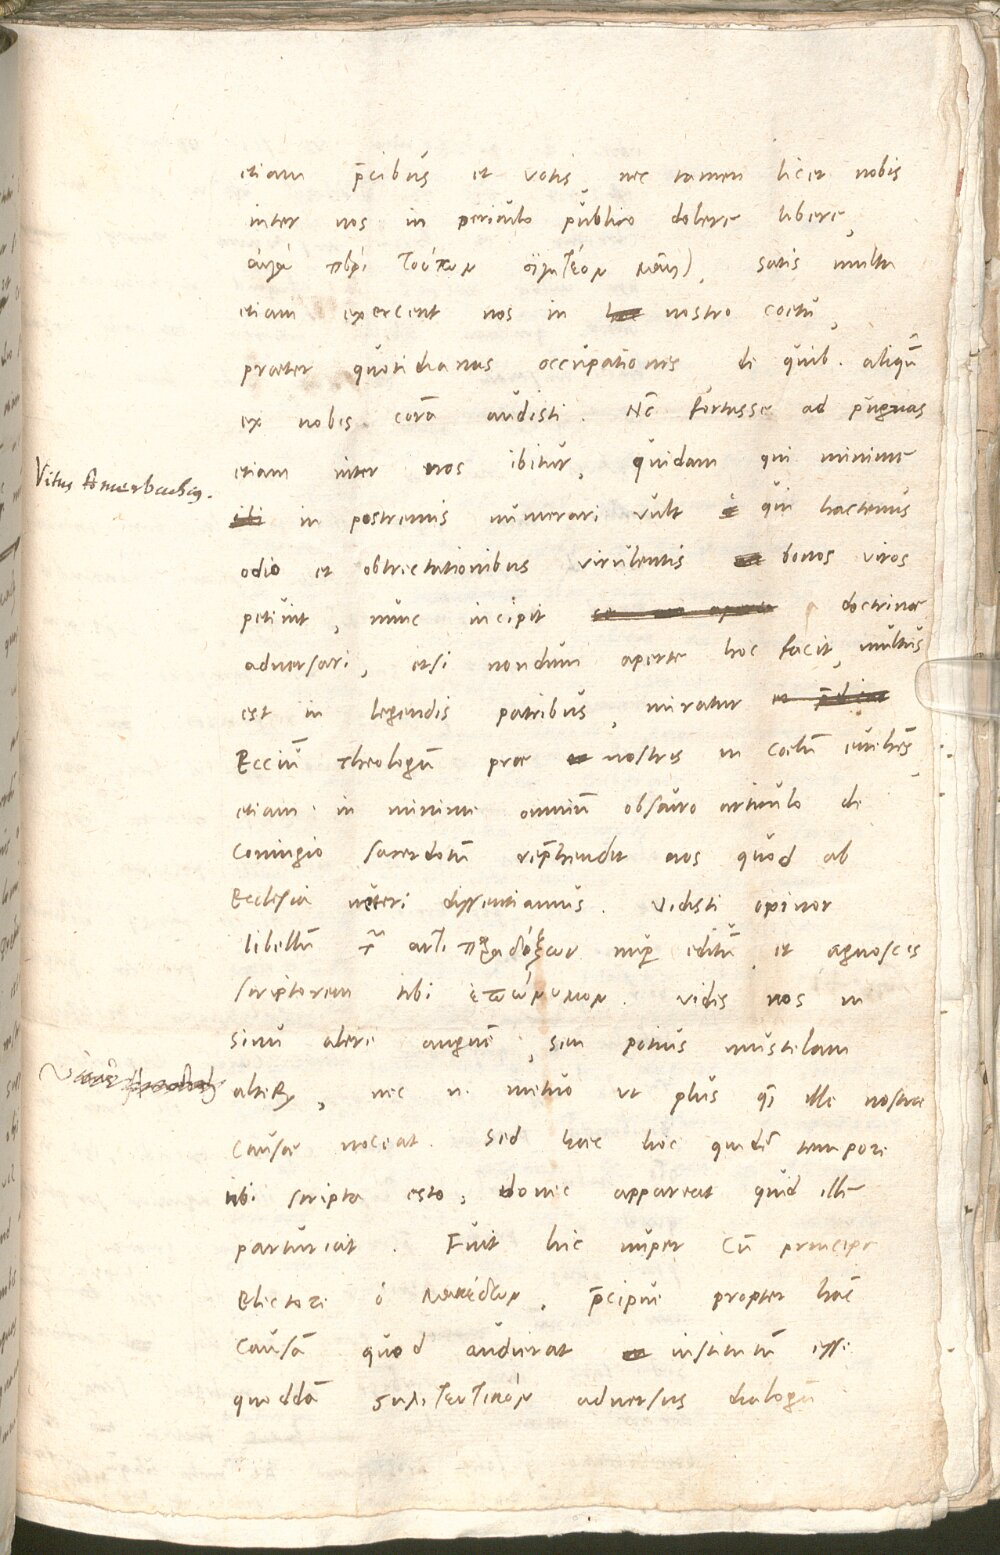 etiam p̄cibus et votis, nec tamen licet nobis
inter nos in periculo publico dolere libere,
περὶ τούτων satis multa
etiam exercent nos in nostro coetu,
praeter quotidianas occupationes de quib. aliqū
ex nobis corā audisti. Nc̄ fortasse ad pugnas
etiam inter nos ibitur, quidam qui minime
Vitus Amerbachius.
in postremis numerari vult qui hactenus
odio et obtrectationibus virulentis bonos viros
petiuit, nunc incipit doctrinae
adversari, etsi nondum aperte hoc facit, multus
est in legendis patribus, miratur
Ecciū theologū prae nostris in coelū evehēs,
etiam in minime omniū obscuro articulo de
Coniugio sacerdotū rep̄hendit nos quod ab
Ecclesia veteri dissentiamus. Vidisti opinor
libellū παραδόξων nuper editū et agnoscis
scriptorem tibi ἐπώνυμον. Vides nos in
sinu alere anguē, seu potius mustelam
alteR, nec n. metuo ut plus q̄ ille nostrae
Causae noceat. Sed haec hoc quidē tempore
tibi scripta esto, donec appareat quid ille
parturiat. Fuit hic nuper Cū principe
Electore ὁ μακέδων, p̄cipue propter hāc
Causā quod audierat institutū esse
quoddā συλιτευτικόν adversus dialogū